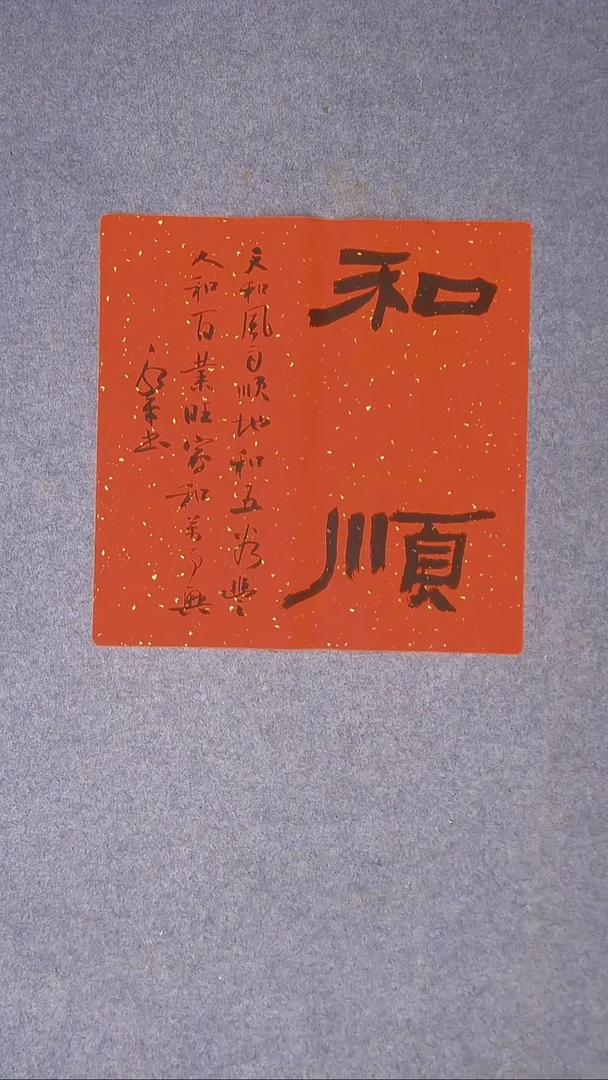 和順
天和風自順地和五谷豐
人和百業旺家和萬事興
書